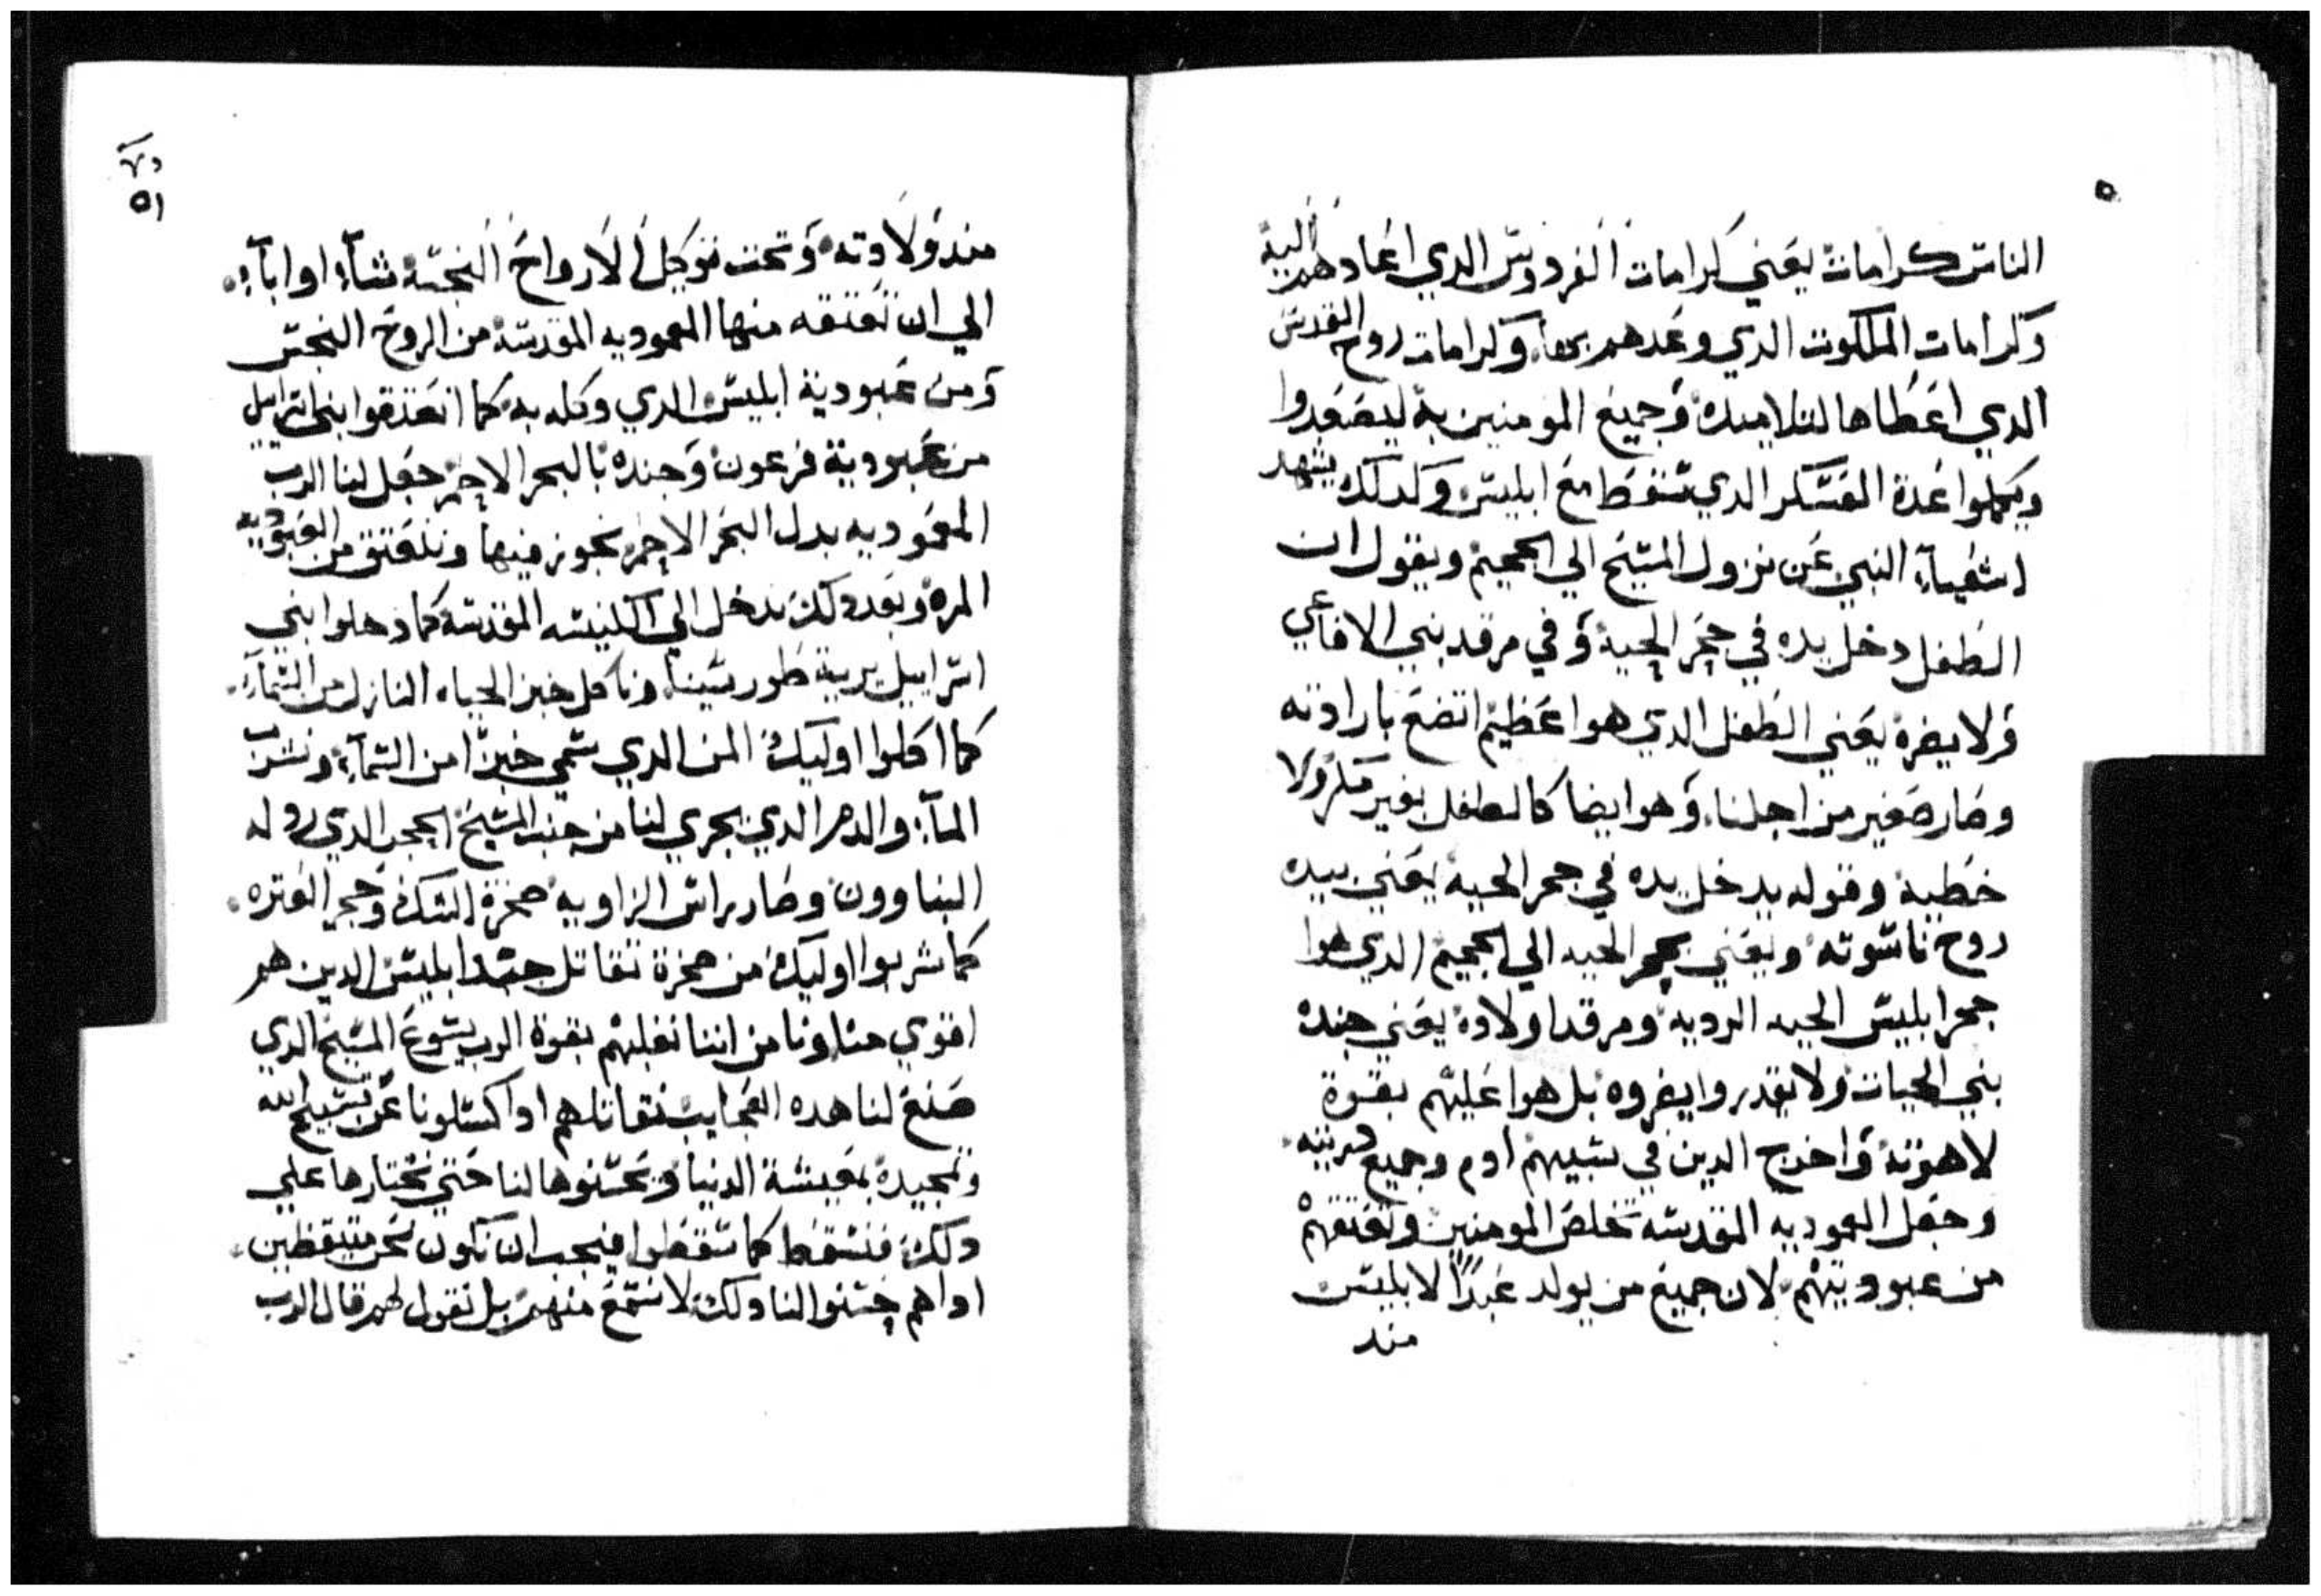 الناس كرامات يعني كرامات الفردوس الدي اعادهم اليه
وكرامات الملكوت الدي وعدهم بها وكرامات روح القدس
الدي اعطاها لتلاميده وجميع المومنين به ليصعدوا
ويكملوا عدة العسكر الدي سقط مع ابليس وكدلك يشهد
اشعياء النبي عن نزول المسيح الي الجحيم ويقول ان
الطفل دخل يده في حجر الحية وفي مرقد بني الافاعي
ولا يضره يعني الطفل الدي هوا عظيم اتضع بارادته
وصار صغير من اجلنا وهو ايضا كالطفل بغير مكر ولا
خطية وقوله يدخل يده في جحر الحية يعني بيده
روح ناسوته ويعني بجحر الحيه الي الجحيم الدي هوا
جحر ابليس الحيه الرديه ومرقد اولاده يعني جنده
بني الحيات ولا يقدروا يضروه بل هوا غلبهم بقوة
لاهوته واخرج الدين في سبيهم ادم وجميع دريته
وجعل المعموديه المقدسه تخلص المومنين وتعتقهم
من عبوديتهم لان جميع من يولد عبدًا لابليس
مند
٥١
مند ولادته وتحت توكيل الارواح النجسه شاء او اباء
الي ان تعتقه منها المعموديه المقدسه من الروح النجس
ومن عبودية ابليس الدي وكله به كما انعتقوا بني اسراييل
من عبودية فرعون وجنده بالبحر الاحمر جعل لنا الرب
المعموديه بدل البحر الاحمر نجوز فيها وننعتق من العبوديه
المره وبعد دلك ندخل الي الكنيسه المقدسه كما دخلوا بني
اسراييل برية طور سينا وناكل خبز الحياه النازل من السماء
كما اكلوا اوليك المن الدي سمي خبزًا من السماء ونشرب
الماء والدم الدي يجري لنا من جنب المسيح الحجر الدي ردوله
البناوون وصار راس الزاويه صخرة الشك وحجر العتره
كما شربوا اوليك من صخرة نقاتل جند ابليس الدين هم
اقوي منا ونامن اننا نغلبهم بقوة الرب يسوع المسيح الدي
صنع لنا هده العجايب نقاتلهم ادا كسلونا عن تسبيح الله
وتمجيده بمعيشة الدنيا وحسنوها لنا حتي نختارها علي
دلك فنسقط كما سقطوا فيجب ان نكون نحن متيقظين
اداهم حسنوا لنا دلك لا نسمع منهم بل نقول لهم قال الرب